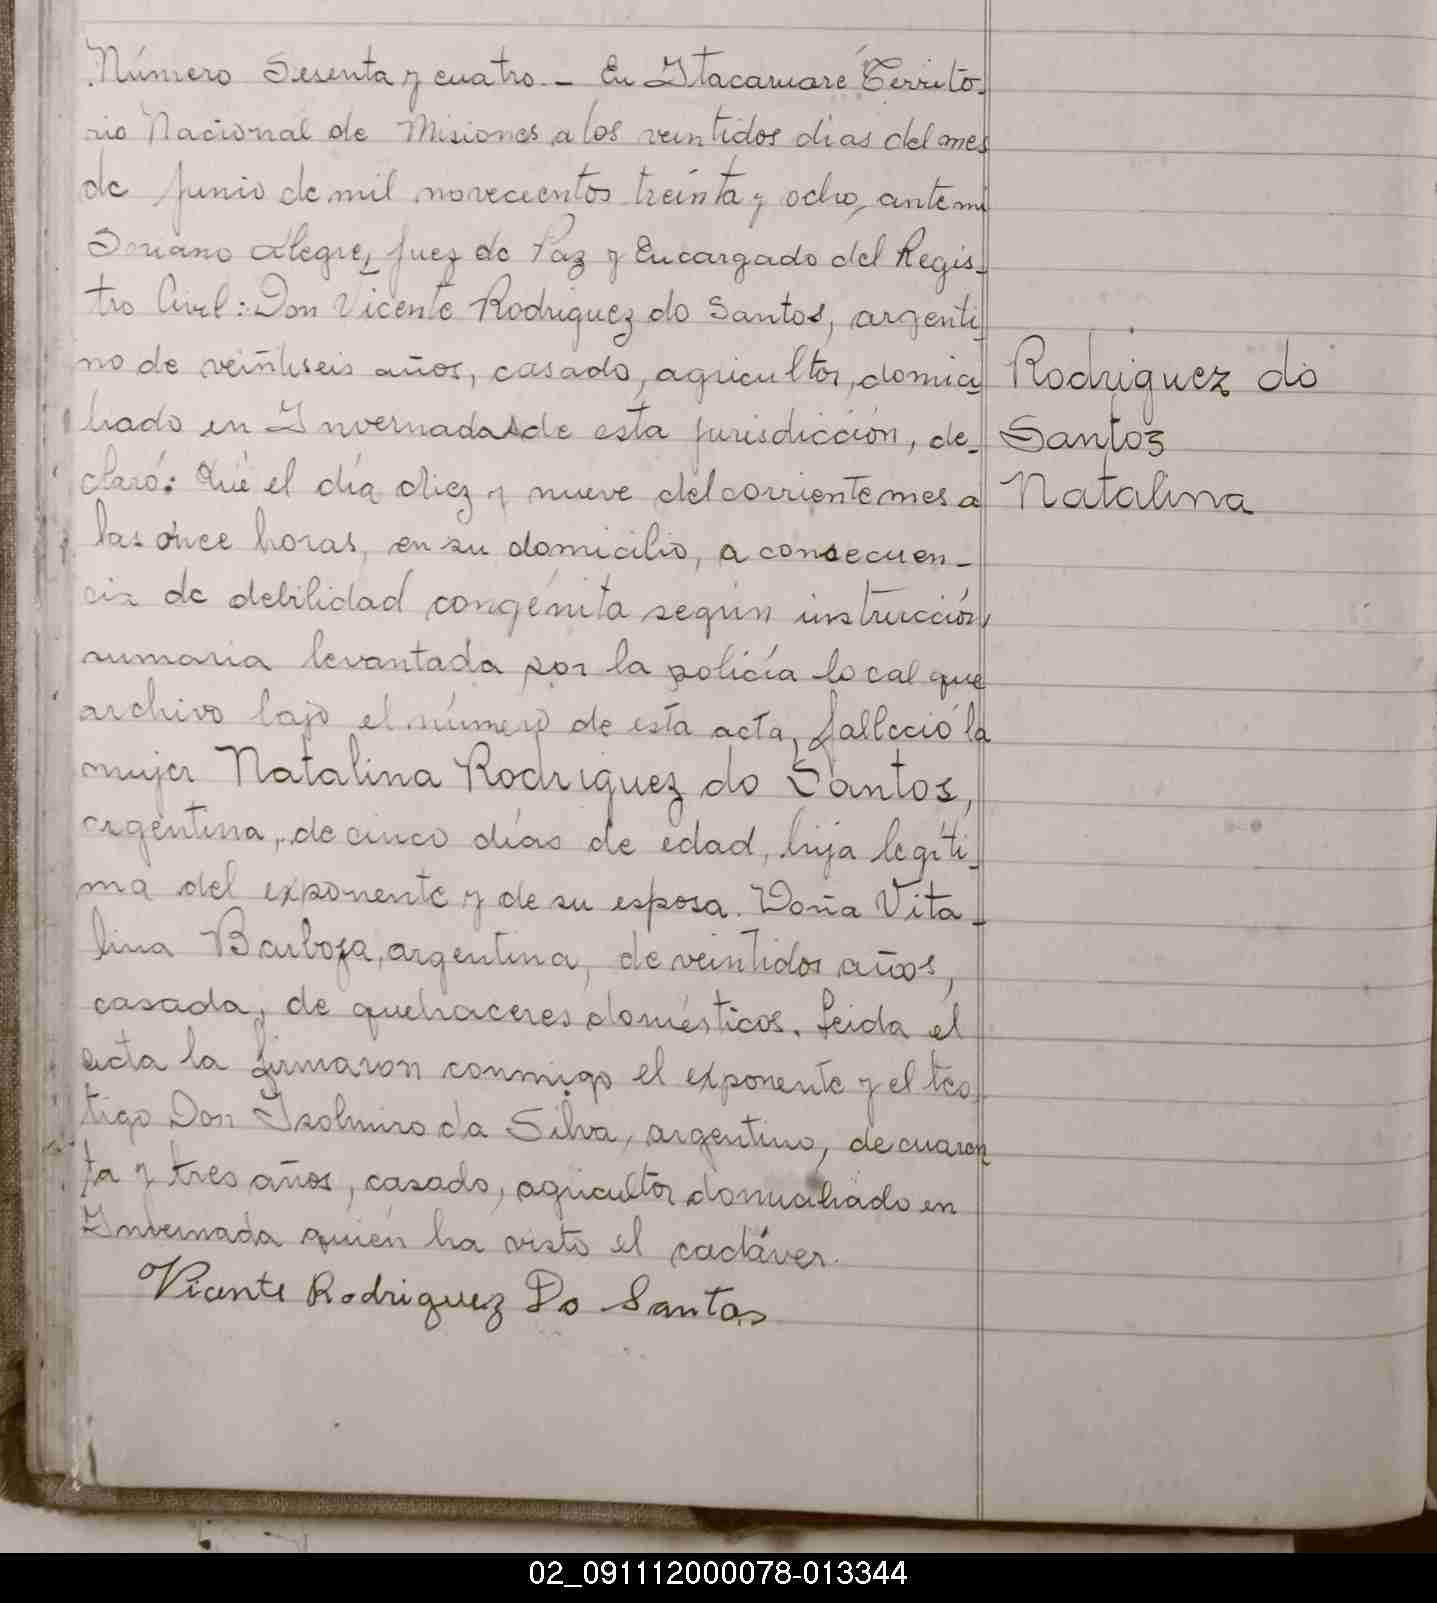 Número Sesenta y cuatro. - En Itacaruaré Territo-
rio Nacional de Misiones a los veintidos dias del mes
de Junio de mil novecientos treinta y ocho, ante mi
Soriano Alegre, Juez de Paz y Encargado del Regis-
tro Civil: Don Vicente Rodriguez do Santos, argenti-
no de veintiseis años, casado, agricultor, domici-
liado en Invernadas de esta jurisdicción, de-
claró: Que el día diez y nueve del corriente mes a
las once horas, en su domicilio, a consecuen-
cia de debilidad congénita según instrucción
sumaria levantada por la policía local que
archivo bajo el número de esta acta, falleció la
mujer Natalina Rodriguez do Santos,
argentina, de cinco días de edad, hija legíti-
ma del exponente y de su esposa. Doña Vita-
lina Barboza, argentina, de veintidos años,
casada, de quehaceres domésticos. Leida el
acta la firmaron conmigo el exponente y el tes-
tigo Don Isolmiro da Silva, argentino, de cuaren
ta y tres años, casado, agricultor domiciliado en
Invernada quién ha visto el cadáver.
Vicente Rodriguez Do Santos
Rodriguez do
Santos
Natalina
02_091112000078-013344